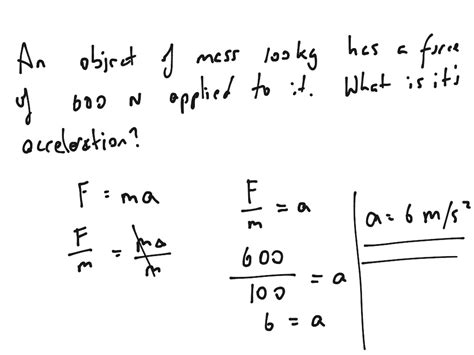 An object of mass 100kg has a force
of 600 N applied to it. What is it's
acceleration?
F = ma
F/m = ma/m
F/m = a
600/100 = a
6 = a
a = 6 m/s²